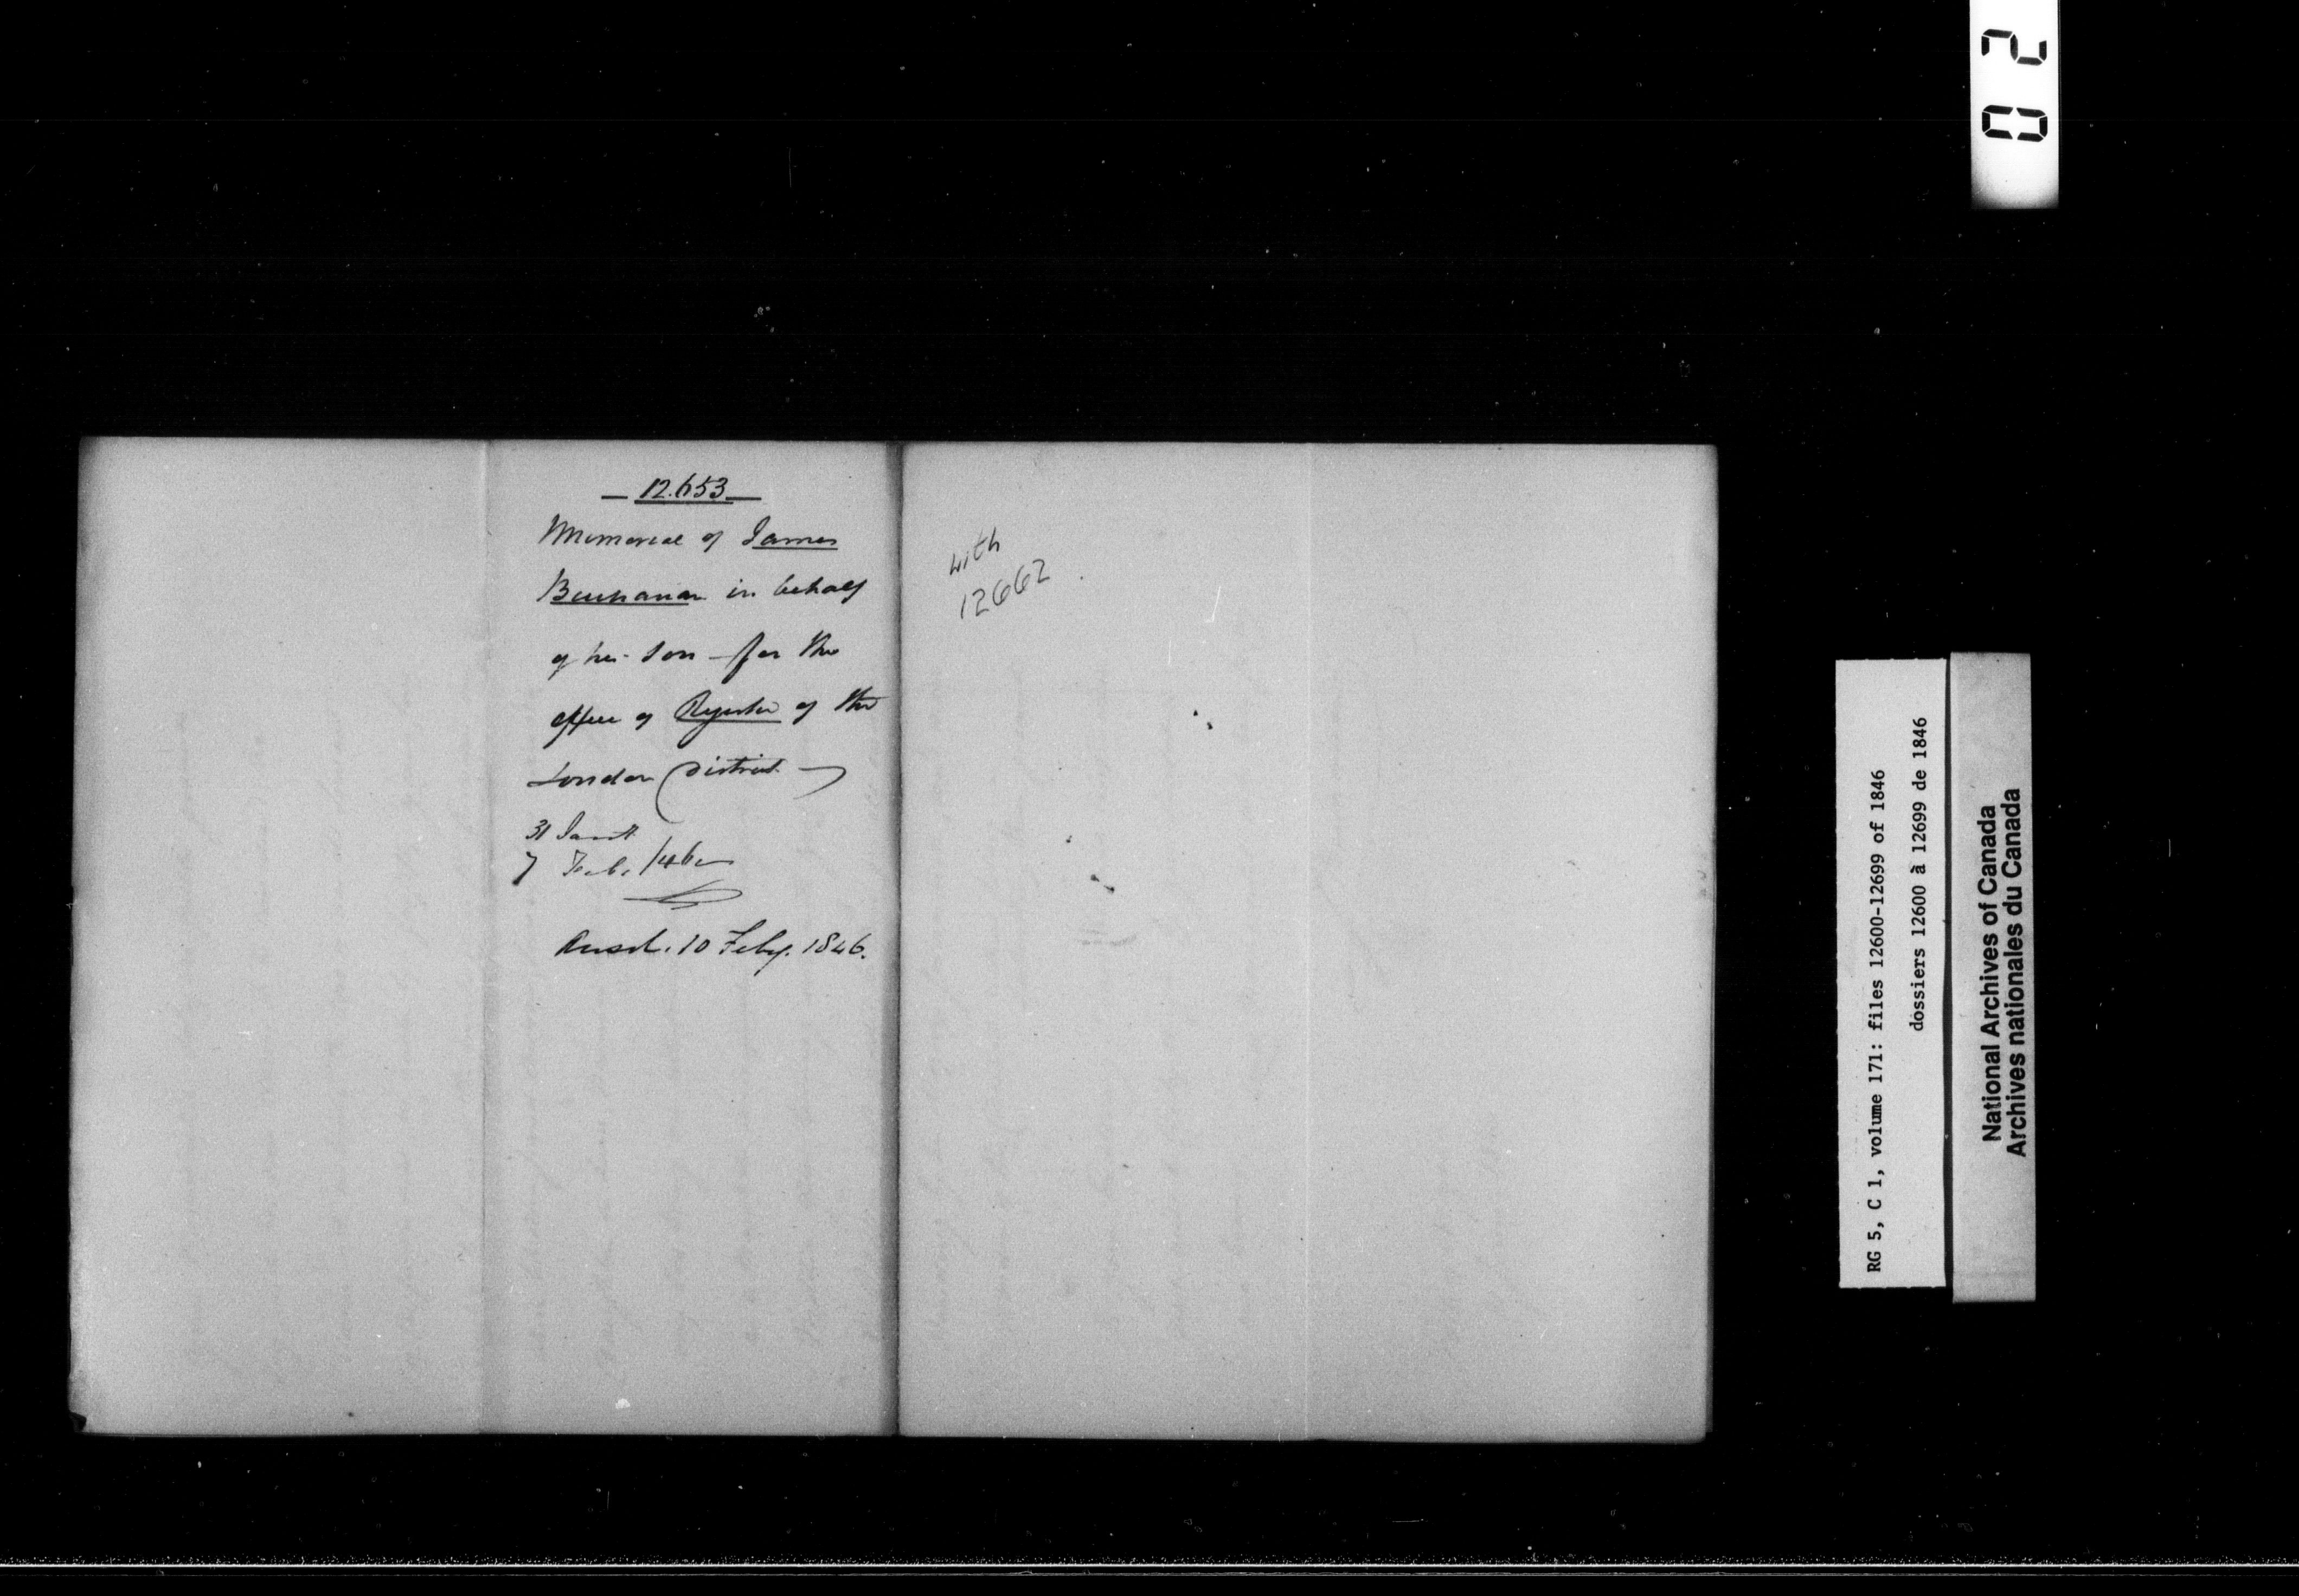 12.653
Memorial of James
Buchanan in behalf
of his son - for the
office of Register of the
London District
31 Jany
7 Feb. /46
Ansd. 10 Feby. 1846.
with
12662
02
RG 5, C 1, volume 171: files 12600-12699 of 1846
dossiers 12600 à 12699 de 1846
National Archives of Canada
Archives nationales du Canada